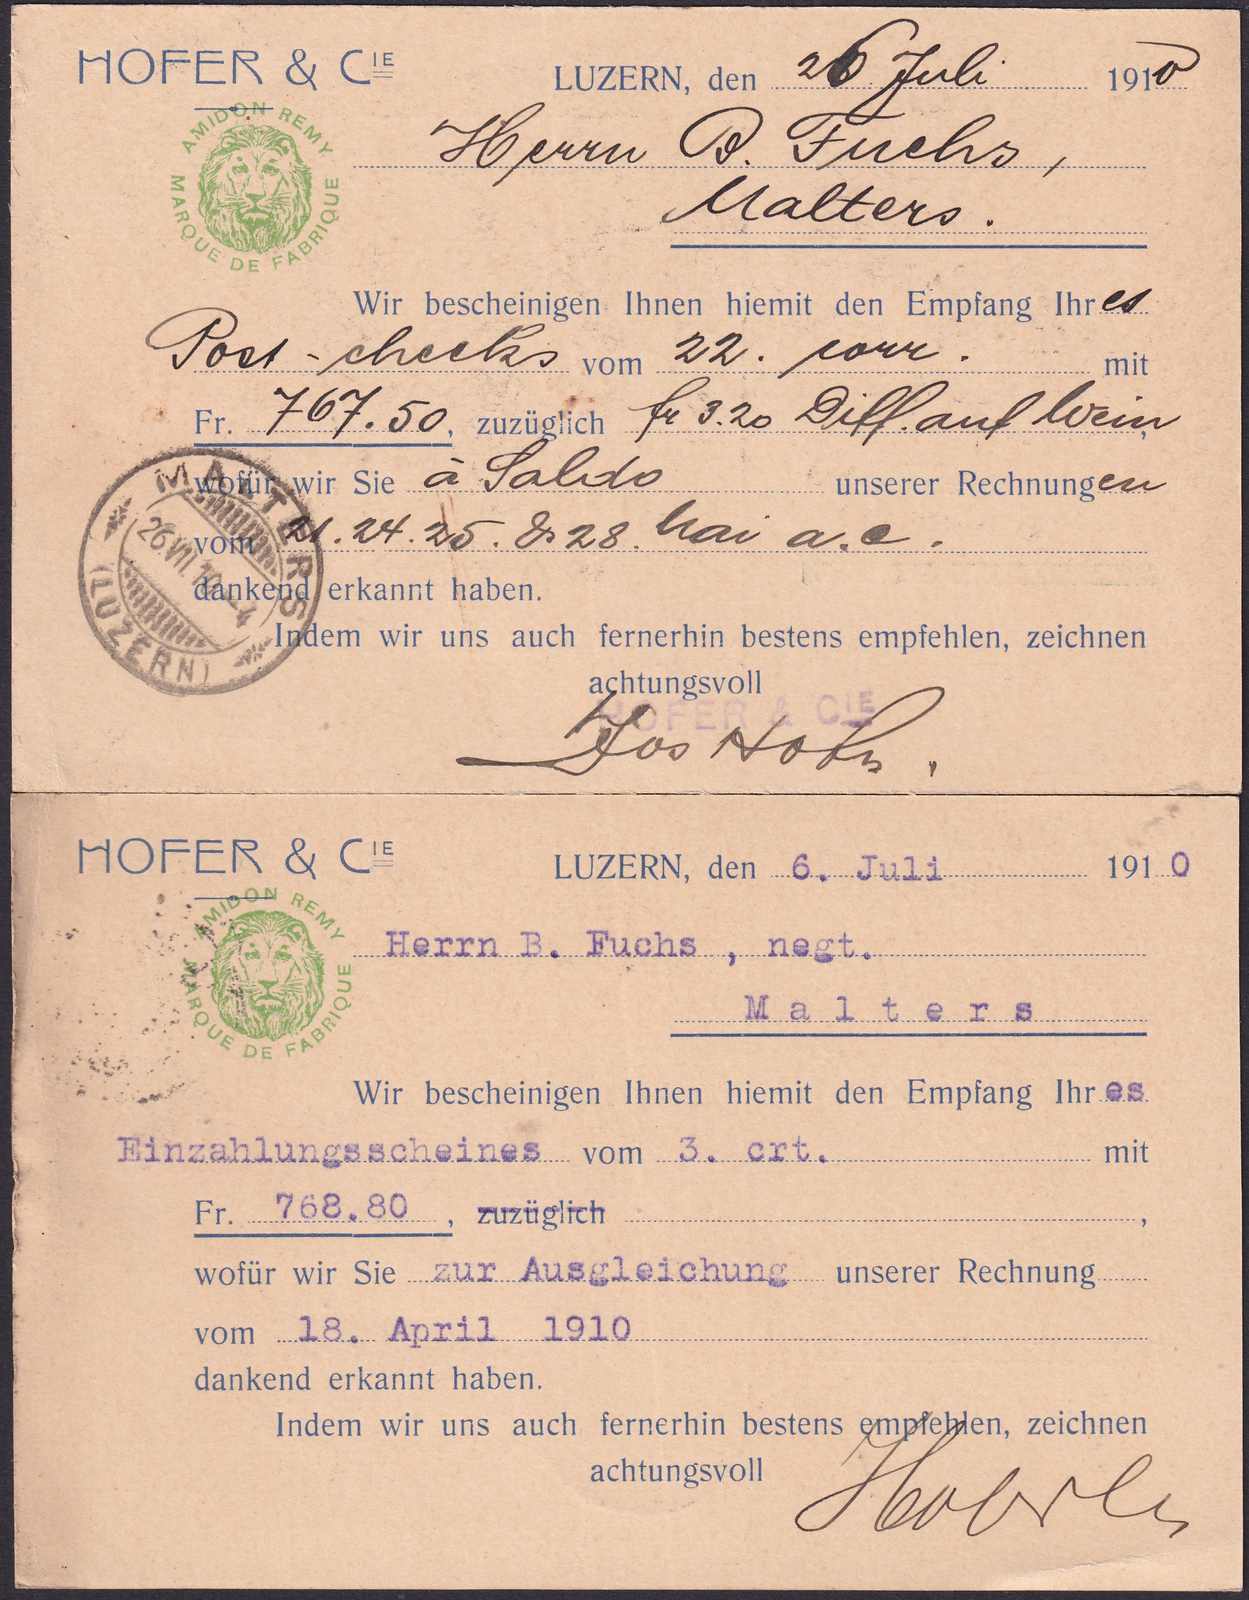 HOFER & CIE
LUZERN, den 26 Juli 1910
AMIDON REMY
MARQUE DE FABRIQUE
Herrn B. Fuchs,
Malters.
Wir bescheinigen Ihnen hiemit den Empfang Ihres
Post-checks vom 22. corr. mit
Fr. 767.50, zuzüglich fr 3.20 Diff. auf Wein,
wofür wir Sie à Saldo unserer Rechnungen
vom 21. 24. 25. & 28. Mai a.c.
dankend erkannt haben.
MALTERS
26.VII.10.–4
(LUZERN)
Indem wir uns auch fernerhin bestens empfehlen, zeichnen
achtungsvoll
HOFER & CIE
HOFER & CIE
LUZERN, den 6. Juli 1910
AMIDON REMY
MARQUE DE FABRIQUE
Herrn B. Fuchs , negt.
Malters
Wir bescheinigen Ihnen hiemit den Empfang Ihres
Einzahlungsscheines vom 3. crt. mit
Fr. 768.80 , zuzüglich ,
wofür wir Sie zur Ausgleichung unserer Rechnung
vom 18. April 1910
dankend erkannt haben.
Indem wir uns auch fernerhin bestens empfehlen, zeichnen
achtungsvoll